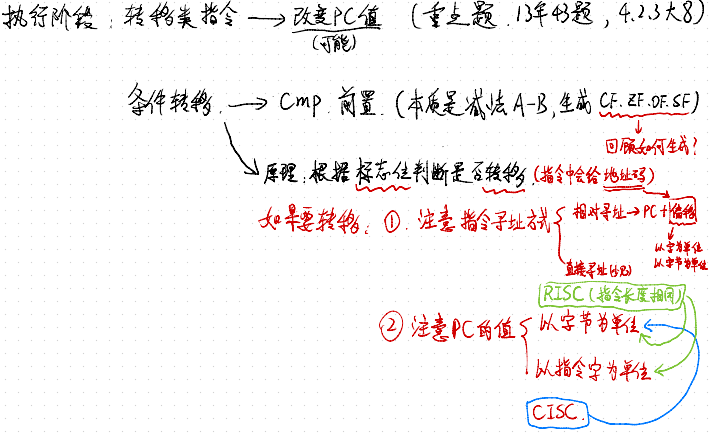 执行阶段：转移类指令 → 改变PC值 （重点题.13年43题，4.2.3大8）
(可能)
条件转移. → Cmp.前置.（本质是减法A-B,生成CF.ZF.OF.SF）
回顾如何生成？
原理：根据标志位判断是否转移.（指令中会给地址码）
如果要转移：①.注意指令寻址方式
相对寻址→PC+偏移
以字为单位
以字节为单位
直接寻址(少见)
RISC（指令长度相同）
②注意PC的值
以字节为单位
以指令字为单位
CISC.